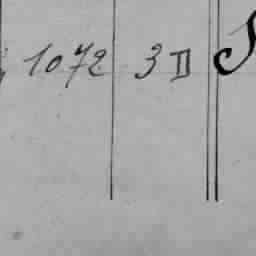 1072 3 II